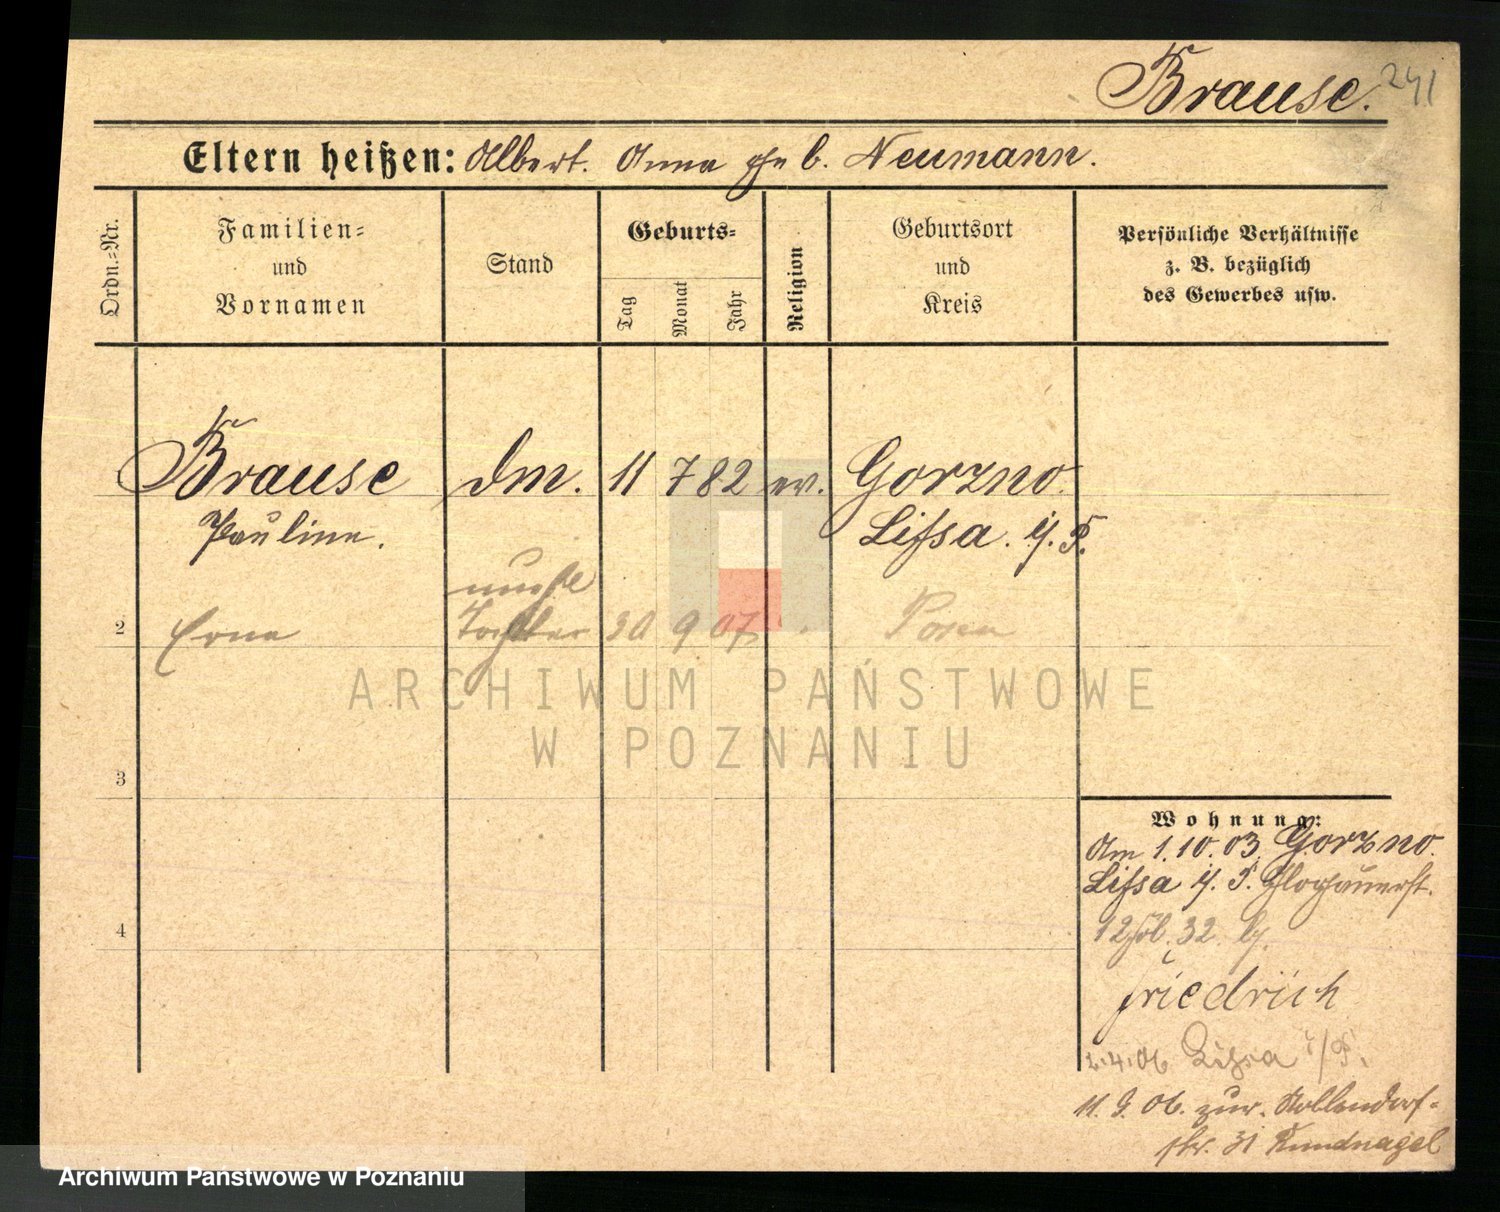 Brause. 241
Eltern heißen: Albert. Anna geb. Neumann.
Ordn.-Nr.
Familien-
und
Vornamen
Stand
Geburts-
Tag
Monat
Jahr
Religion
Geburtsort
und
Kreis
Persönliche Verhältnisse
z. B. bezüglich
des Gewerbes usw.
Brause dm. 11 7 82 ev. Gorzno
Pauline. Lissa. i/. P.
unehl
2 Erna Tochter 30 9 07 Posen
ARCHIWUM PAŃSTWOWE
W POZNANIU
3
4
Wohnung:
Am 1.10.03 Gorzno.
Lissa i/. P. Glogauerst.
32
Friedrich
2.4.06 Lissa i/P.
11. 9. 06. zur. Kollendorf-
str. 31
Archiwum Państwowe w Poznaniu